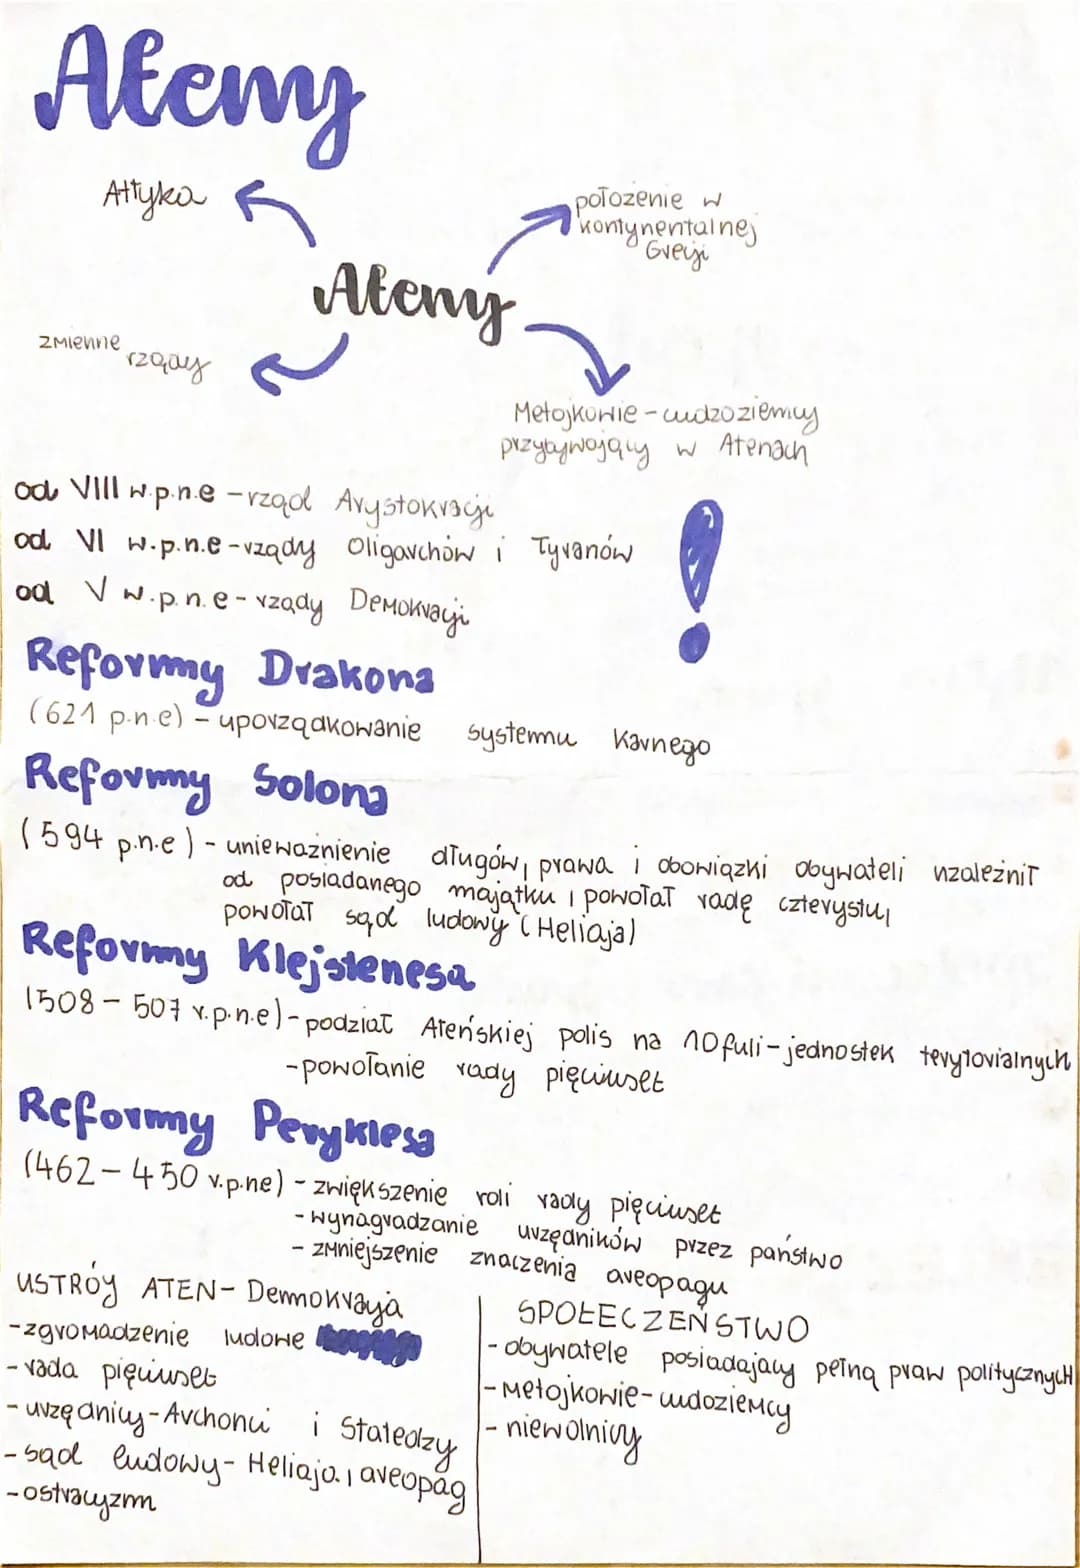 Ateny
Attyka
położenie w
kontynentalnej
Grecji
Ateny
zmienne
rządy
Metojkowie - cudzoziemcy
przybywający w Atenach
od VIII w.p.n.e - rząd Arystokracji
od VI w.p.n.e - rządy Oligarchów i Tyranów
od V w.p.n.e - rządy Demokracji
!
Reformy Drakona
(621 p.n.e) - uporządkowanie systemu karnego
Reformy Solona
(594 p.n.e) - unieważnienie długów, prawa i obowiązki obywateli uzależnił
od posiadanego majątku, powołał radę czterystu,
powołał sąd ludowy (Heliaja)
Reformy Klejstenesa
(508 - 507 r.p.n.e) - podział Ateńskiej polis na 10 fuli - jednostek terytorialnych
- powołanie rady pięciuset
Reformy Peryklesa
(462 - 450 r.p.ne) - zwiększenie roli rady pięciuset
- wynagradzanie urzędników przez państwo
- zmniejszenie znaczenia areopagu
USTRÓJ ATEN - Demokracja
- zgromadzenie ludowe
- rada pięciuset
- urzędnicy - Archonci i Stratedzy
- sąd ludowy - Heliaja, areopag
- ostracyzm
SPOŁECZEŃSTWO
- obywatele posiadający pełną praw politycznych
- Metojkowie - cudoziemcy
- niewolnicy